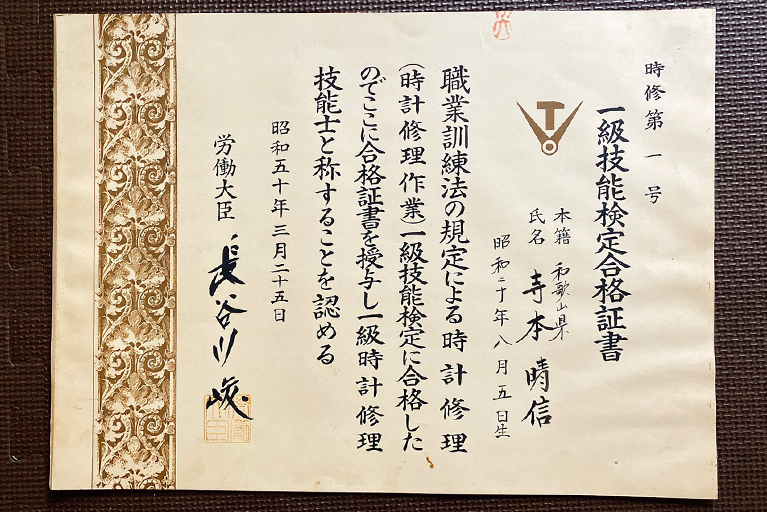 時修第一号
一級技能検定合格証書
本籍 和歌山県
氏名 寺本晴信
昭和二十年八月五日生
職業訓練法の規定による時計修理
(時計修理作業)一級技能検定に合格した
のでここに合格証書を授与し一級時計修理
技能士と称することを認める
昭和五十年三月二十五日
労働大臣 長谷川峻